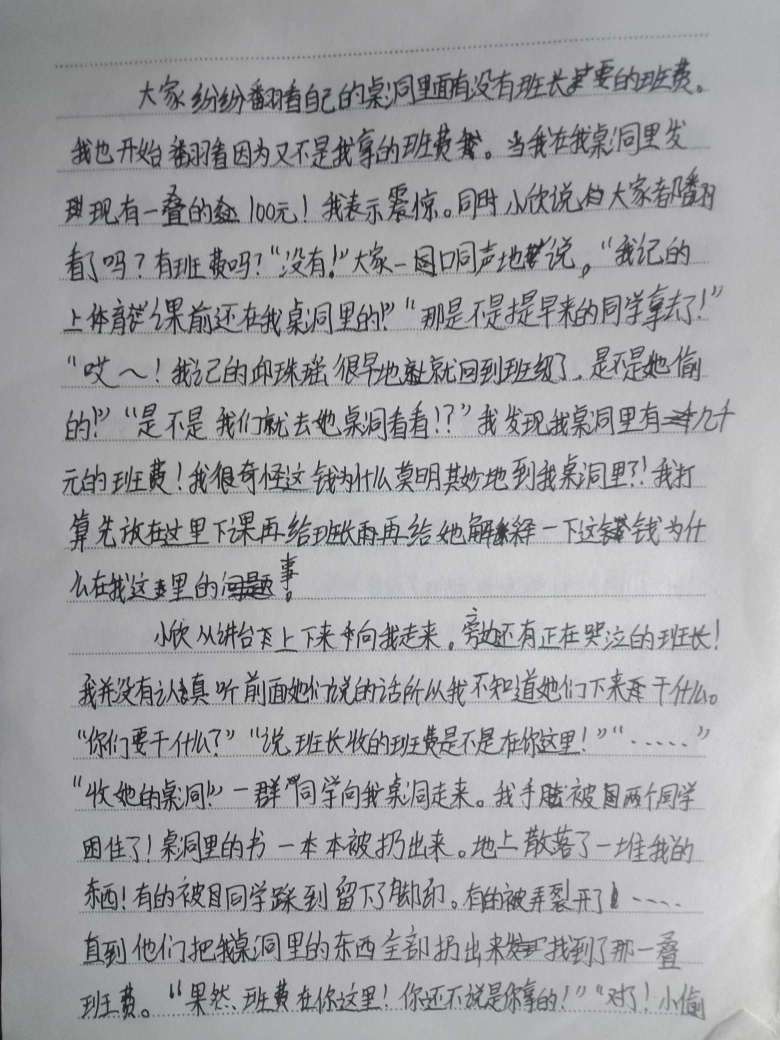 大家纷纷翻着自己的桌洞里面有没有班长要的班费。
我也开始翻着因为又不是我拿的班费我。当我在我桌洞里发
现有一叠的 100元！我表示震惊。同时小欣说 大家都翻
看了吗？有班费吗？“没有！”大家一口同声地说。“我记的
上体育课前还在我桌洞里的！”“那是不是提早来的同学拿去了！”
“哎～！我记的邱珠瑶很早地就回到班级了，是不是她偷
的！”“是不是我们就去她桌洞看看！？”我发现我桌洞里有几千
元的班费！我很奇怪这钱为什么莫明其妙地到我桌洞里了！我打
算先放在这里下课再给班长再给她解释一下这钱为什
么在我这里的事。
小欣从讲台上下来向我走来。旁边还有正在哭泣的班长！
我并没有认真听前面她们说的话所以我不知道她们下来干什么。
“你们要干什么？”“说班长收的班费是不是在你这里！”“……”
“收她的桌洞！”一群同学向我桌洞走来。我手被两个同学
困住了！桌洞里的书一本本被扔出来。地上散落了一堆我的
东西！有的被同学踩到留下了脚印。有的被弄裂开了……
直到他们把我桌洞里的东西全部扔出来找到了那一叠
班费。“果然、班费在你这里！你还不说是你拿的！”“对了！小偷